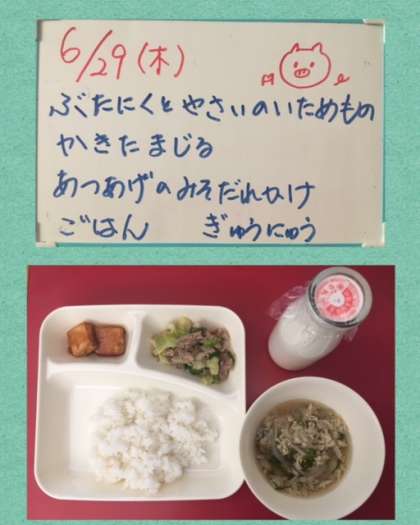 6/29(木)
ぶたにくとやさいのいためもの
かきたまじる
あつあげのみそだれかけ
ごはん　ぎゅうにゅう